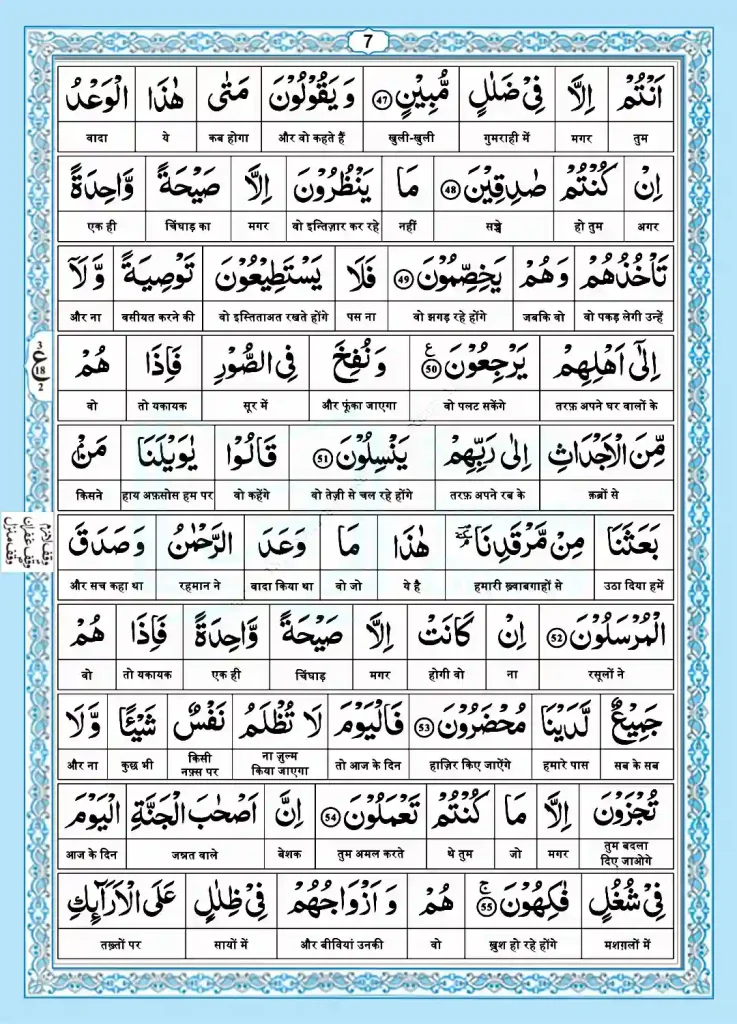 7
اَنْتُمْ اِلَّا فِیْ ضَلٰلٍ مُّبِیْنٍ ﴿47﴾ وَ یَقُوْلُوْنَ مَتٰی هٰذَا الْوَعْدُ
तुम मगर गुमराही में खुली-खुली और वो कहते हैं कब होगा ये वादा
اِنْ كُنْتُمْ صٰدِقِیْنَ ﴿48﴾ مَا یَنْظُرُوْنَ اِلَّا صَیْحَةً وَّاحِدَةً
अगर हो तुम सच्चे नहीं वो इन्तिज़ार कर रहे मगर चिंघाड़ का एक ही
تَاْخُذُهُمْ وَهُمْ یَخِصِّمُوْنَ ﴿49﴾ فَلَا یَسْتَطِیْعُوْنَ تَوْصِیَةً وَّلَاۤ
वो पकड़ लेगी उन्हें जबकि वो वो झगड़ रहे होंगे पस ना वो इस्तिताअत रखते होंगे वसीयत करने की और ना
3
ع
18
2
اِلٰۤی اَهْلِهِمْ یَرْجِعُوْنَ ﴿50﴾ ع وَ نُفِخَ فِی الصُّوْرِ فَاِذَا هُمْ
तरफ़ अपने घर वालों के वो पलट सकेंगे और फूंका जाएगा सूर में तो यकायक वो
مِّنَ الْاَجْدَاثِ اِلٰی رَبِّهِمْ یَنْسِلُوْنَ ﴿51﴾ قَالُوْا یٰوَیْلَنَا مَنْۢ
क़ब्रों से तरफ़ अपने रब के वो तेज़ी से चल रहे होंगे वो कहेंगे हाय अफ़सोस हम पर किसने
وقف لازم
وقف غفران
وقف منزل
بَعَثَنَا مِنْ مَّرْقَدِنَا هٰذَا مَا وَعَدَ الرَّحْمٰنُ وَ صَدَقَ
उठा दिया हमें हमारी ख़्वाबगाहों से ये है वो जो वादा किया था रहमान ने और सच कहा था
الْمُرْسَلُوْنَ ﴿52﴾ اِنْ كَانَتْ اِلَّا صَیْحَةً وَّاحِدَةً فَاِذَا هُمْ
रसूलों ने ना होगी वो मगर चिंघाड़ एक ही तो यकायक वो
جَمِیْعٌ لَّدَیْنَا مُحْضَرُوْنَ ﴿53﴾ فَالْیَوْمَ لَا تُظْلَمُ نَفْسٌ شَیْـًٔا وَّلَا
सब के सब हमारे पास हाज़िर किए जाऐंगे तो आज के दिन ना ज़ुल्म किया जाएगा किसी नफ़्स पर कुछ भी और ना
تُجْزَوْنَ اِلَّا مَا كُنْتُمْ تَعْمَلُوْنَ ﴿54﴾ اِنَّ اَصْحٰبَ الْجَنَّةِ الْیَوْمَ
तुम बदला दिए जाओगे मगर जो थे तुम तुम अमल करते बेशक जन्नत वाले आज के दिन
فِیْ شُغُلٍ فٰكِهُوْنَ ﴿55﴾ ج هُمْ وَ اَزْوَاجُهُمْ فِیْ ظِلٰلٍ عَلَی الْاَرَآىِٕكِ
मशग़लों में ख़ुश हो रहे होंगे वो और बीवियां उनकी सायों में तख़्तों पर